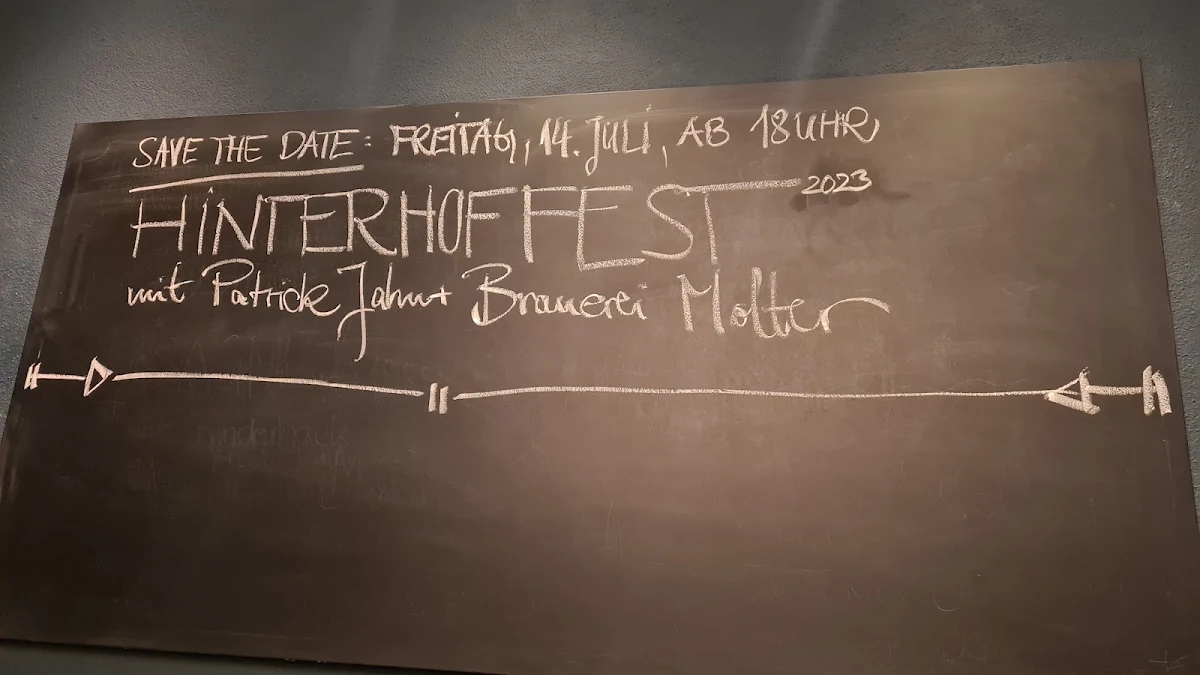 SAVE THE DATE: FREITAG, 14. JULI, AB 18 UHR
HINTERHOFFEST 2023
mit Patrick Jahn + Brauerei Molter